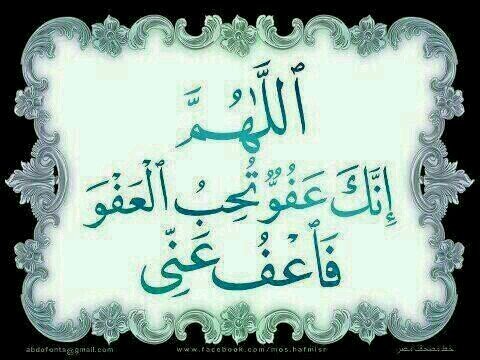 ٱللَّهُمَّ
إِنَّكَ عَفُوٌّ تُحِبُ ٱلْعَفْوَ
فَٱعْفُ عَنِّى
abdofonts@gmail.com www.facebook.com/mos.hafmisr خط مصحف مصر